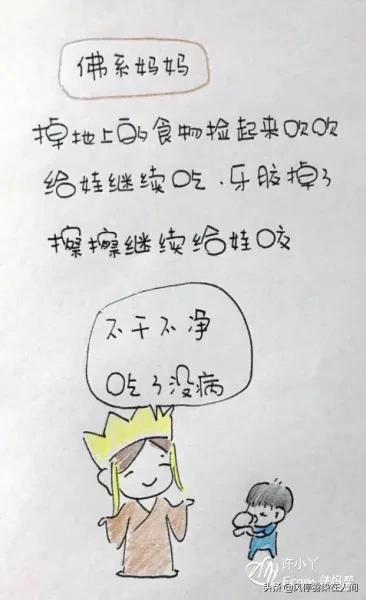 佛系妈妈
掉地上的食物捡起来吹吹
给娃继续吃.牙胶掉了
擦擦继续给娃咬
不干不净
吃了没病
许小丫
From 辣妈帮
头条@风停骤染在人间